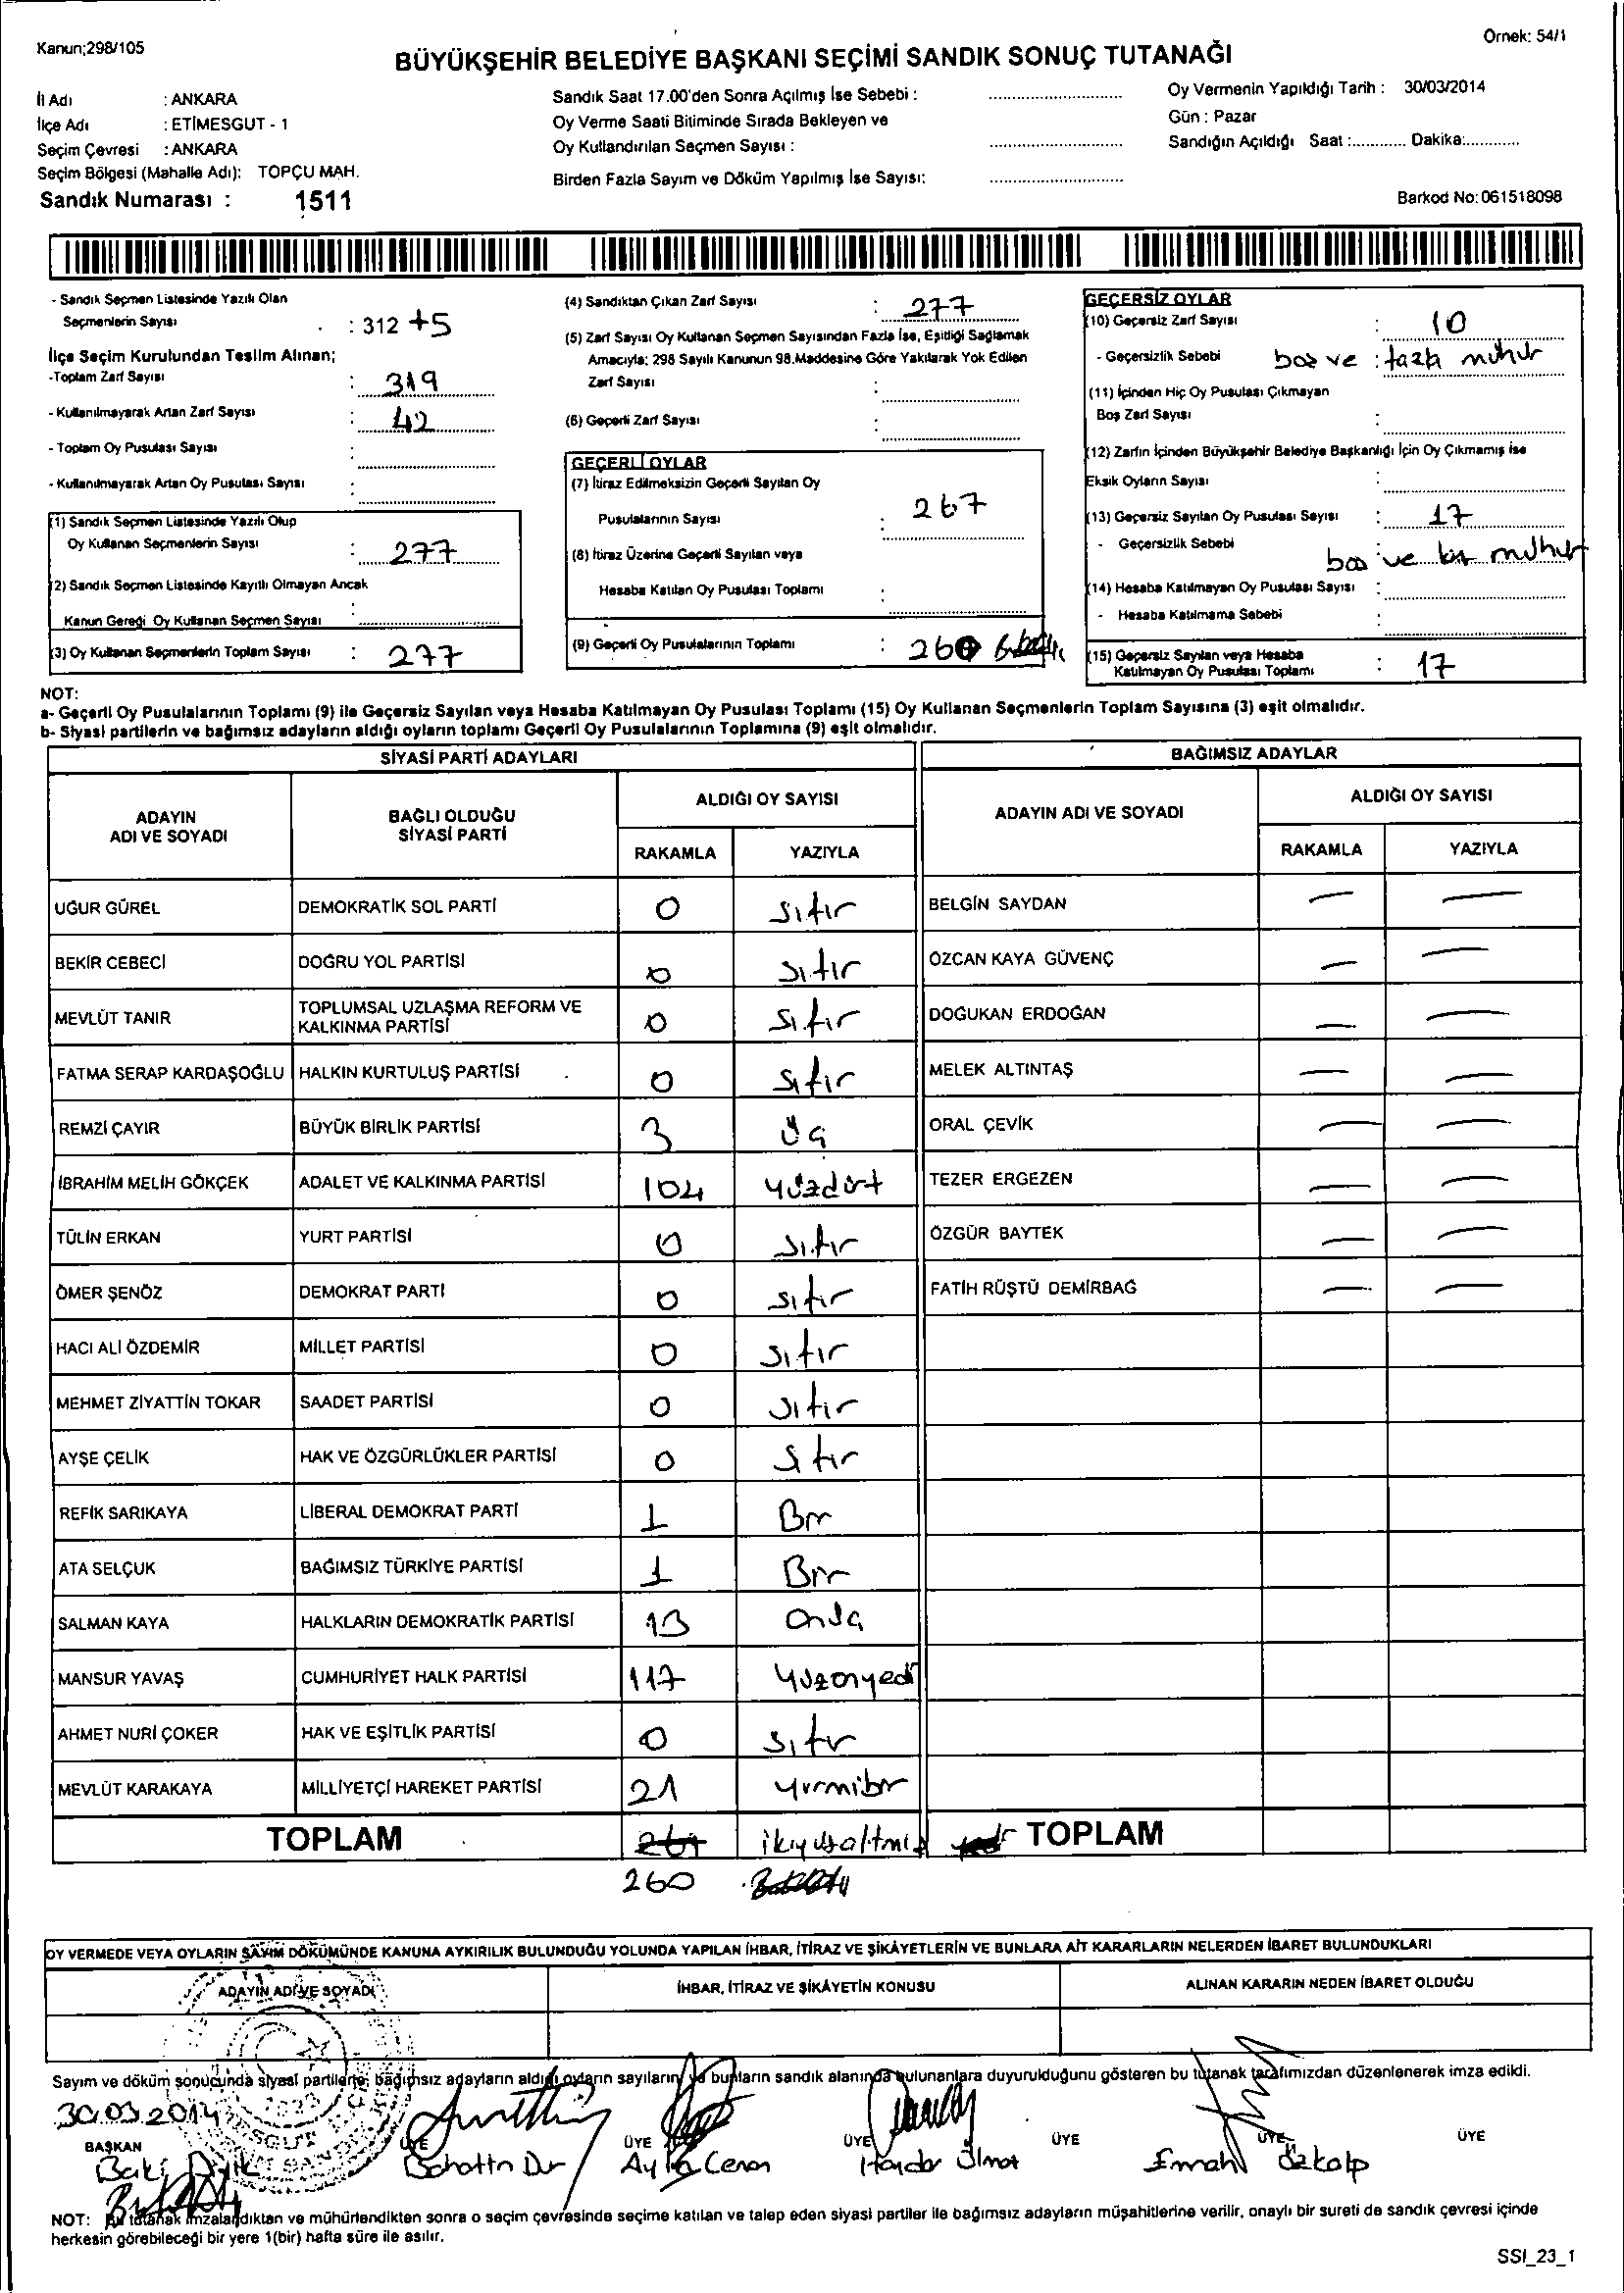 Kanun;298/105
Örnek: 54/1
BÜYÜKŞEHİR BELEDİYE BAŞKANI SEÇİMİ SANDIK SONUÇ TUTANAĞI
İl Adı : ANKARA
İlçe Adı : ETİMESGUT - 1
Seçim Çevresi : ANKARA
Seçim Bölgesi (Mahalle Adı): TOPÇU MAH.
Sandık Numarası : 1511
Sandık Saat 17.00'den Sonra Açılmış İse Sebebi :
Oy Verme Saati Bitiminde Sırada Bekleyen ve
Oy Kullandırılan Seçmen Sayısı :
Birden Fazla Sayım ve Döküm Yapılmış İse Sayısı:
Oy Vermenin Yapıldığı Tarih : 30/03/2014
Gün : Pazar
Sandığın Açıldığı Saat :............ Dakika:............
Barkod No: 061518098
- Sandık Seçmen Listesinde Yazılı Olan
Seçmenlerin Sayısı : 312 +5
İlçe Seçim Kurulundan Teslim Alınan;
-Toplam Zarf Sayısı : 319
- Kullanılmayarak Artan Zarf Sayısı : 42
- Toplam Oy Pusulası Sayısı :
- Kullanılmayarak Artan Oy Pusulası Sayısı :
(1) Sandık Seçmen Listesinde Yazılı Olup
Oy Kullanan Seçmenlerin Sayısı : 277
(2) Sandık Seçmen Listesinde Kayıtlı Olmayan Ancak
Kanun Gereği Oy Kullanan Seçmen Sayısı :
(3) Oy Kullanan Seçmenlerin Toplam Sayısı : 277
(4) Sandıktan Çıkan Zarf Sayısı : 277
(5) Zarf Sayısı Oy Kullanan Seçmen Sayısından Fazla İse, Eşitliği Sağlamak
Amacıyla; 298 Sayılı Kanunun 98.Maddesine Göre Yakılarak Yok Edilen
Zarf Sayısı :
(6) Geçerli Zarf Sayısı :
GEÇERLİ OYLAR
(7) İtiraz Edilmeksizin Geçerli Sayılan Oy
Pusulalarının Sayısı : 267
(8) İtiraz Üzerine Geçerli Sayılan veya
Hesaba Katılan Oy Pusulası Toplamı :
(9) Geçerli Oy Pusulalarının Toplamı : 260
GEÇERSİZ OYLAR
(10) Geçersiz Zarf Sayısı : 10
- Geçersizlik Sebebi : boş ve fazla mühür
(11) İçinden Hiç Oy Pusulası Çıkmayan
Boş Zarf Sayısı :
(12) Zarfın İçinden Büyükşehir Belediye Başkanlığı İçin Oy Çıkmamış İse
Eksik Oyların Sayısı :
(13) Geçersiz Sayılan Oy Pusulası Sayısı : 17
- Geçersizlik Sebebi : boş ve bir mühür
(14) Hesaba Katılmayan Oy Pusulası Sayısı :
- Hesaba Katılmama Sebebi :
(15) Geçersiz Sayılan veya Hesaba
Katılmayan Oy Pusulası Toplamı : 17
NOT:
a- Geçerli Oy Pusulalarının Toplamı (9) ile Geçersiz Sayılan veya Hesaba Katılmayan Oy Pusulası Toplamı (15) Oy Kullanan Seçmenlerin Toplam Sayısına (3) eşit olmalıdır.
b- Siyasi partilerin ve bağımsız adayların aldığı oyların toplamı Geçerli Oy Pusulalarının Toplamına (9) eşit olmalıdır.
SİYASİ PARTİ ADAYLARI
ADAYIN
ADI VE SOYADI
BAĞLI OLDUĞU
SİYASİ PARTİ
ALDIĞI OY SAYISI
RAKAMLA YAZIYLA
UĞUR GÜREL DEMOKRATİK SOL PARTİ 0 sıfır
BEKİR CEBECİ DOĞRU YOL PARTİSİ 0 sıfır
MEVLÜT TANIR TOPLUMSAL UZLAŞMA REFORM VE
KALKINMA PARTİSİ 0 sıfır
FATMA SERAP KARDAŞOĞLU HALKIN KURTULUŞ PARTİSİ 0 sıfır
REMZİ ÇAYIR BÜYÜK BİRLİK PARTİSİ 3 üç
İBRAHİM MELİH GÖKÇEK ADALET VE KALKINMA PARTİSİ 104 yüzdört
TÜLİN ERKAN YURT PARTİSİ 0 sıfır
ÖMER ŞENÖZ DEMOKRAT PARTİ 0 sıfır
HACI ALİ ÖZDEMİR MİLLET PARTİSİ 0 sıfır
MEHMET ZİYATTİN TOKAR SAADET PARTİSİ 0 sıfır
AYŞE ÇELİK HAK VE ÖZGÜRLÜKLER PARTİSİ 0 sıfır
REFİK SARIKAYA LİBERAL DEMOKRAT PARTİ 1 Bir
ATA SELÇUK BAĞIMSIZ TÜRKİYE PARTİSİ 1 Bir
SALMAN KAYA HALKLARIN DEMOKRATİK PARTİSİ 13 onüç
MANSUR YAVAŞ CUMHURİYET HALK PARTİSİ 117 yüzonyedi
AHMET NURİ ÇOKER HAK VE EŞİTLİK PARTİSİ 0 sıfır
MEVLÜT KARAKAYA MİLLİYETÇİ HAREKET PARTİSİ 21 yirmibir
TOPLAM 267 ikiyüzaltmış
260
BAĞIMSIZ ADAYLAR
ADAYIN ADI VE SOYADI
ALDIĞI OY SAYISI
RAKAMLA YAZIYLA
BELGİN SAYDAN — —
ÖZCAN KAYA GÜVENÇ — —
DOĞUKAN ERDOĞAN — —
MELEK ALTINTAŞ — —
ORAL ÇEVİK — —
TEZER ERGEZEN — —
ÖZGÜR BAYTEK — —
FATİH RÜŞTÜ DEMİRBAĞ — —
TOPLAM
OY VERMEDE VEYA OYLARIN SAYIM DÖKÜMÜNDE KANUNA AYKIRILIK BULUNDUĞU YOLUNDA YAPILAN İHBAR, İTİRAZ VE ŞİKÂYETLERİN VE BUNLARA AİT KARARLARIN NELERDEN İBARET BULUNDUKLARI
ADAYIN ADI VE SOYADI
İHBAR, İTİRAZ VE ŞİKÂYETİN KONUSU
ALINAN KARARIN NEDEN İBARET OLDUĞU
Sayım ve döküm sonucunda siyasi partilerle, bağımsız adayların aldığı oyların sayılarını ve bunların sandık alanında bulunanlara duyurulduğunu gösteren bu tutanak tarafımızdan düzenlenerek imza edildi.
30.03.2014
BAŞKAN ÜYE ÜYE ÜYE ÜYE ÜYE ÜYE
Baki Bahattin Dur Ayla Ceran Haydar Emrah Özkalp
NOT: Bu tutanak imzalandıktan ve mühürlendikten sonra o seçim çevresinde seçime katılan ve talep eden siyasi partiler ile bağımsız adayların müşahitlerine verilir, onaylı bir sureti de sandık çevresi içinde
herkesin görebileceği bir yere 1(bir) hafta süre ile asılır.
SSI_23_1